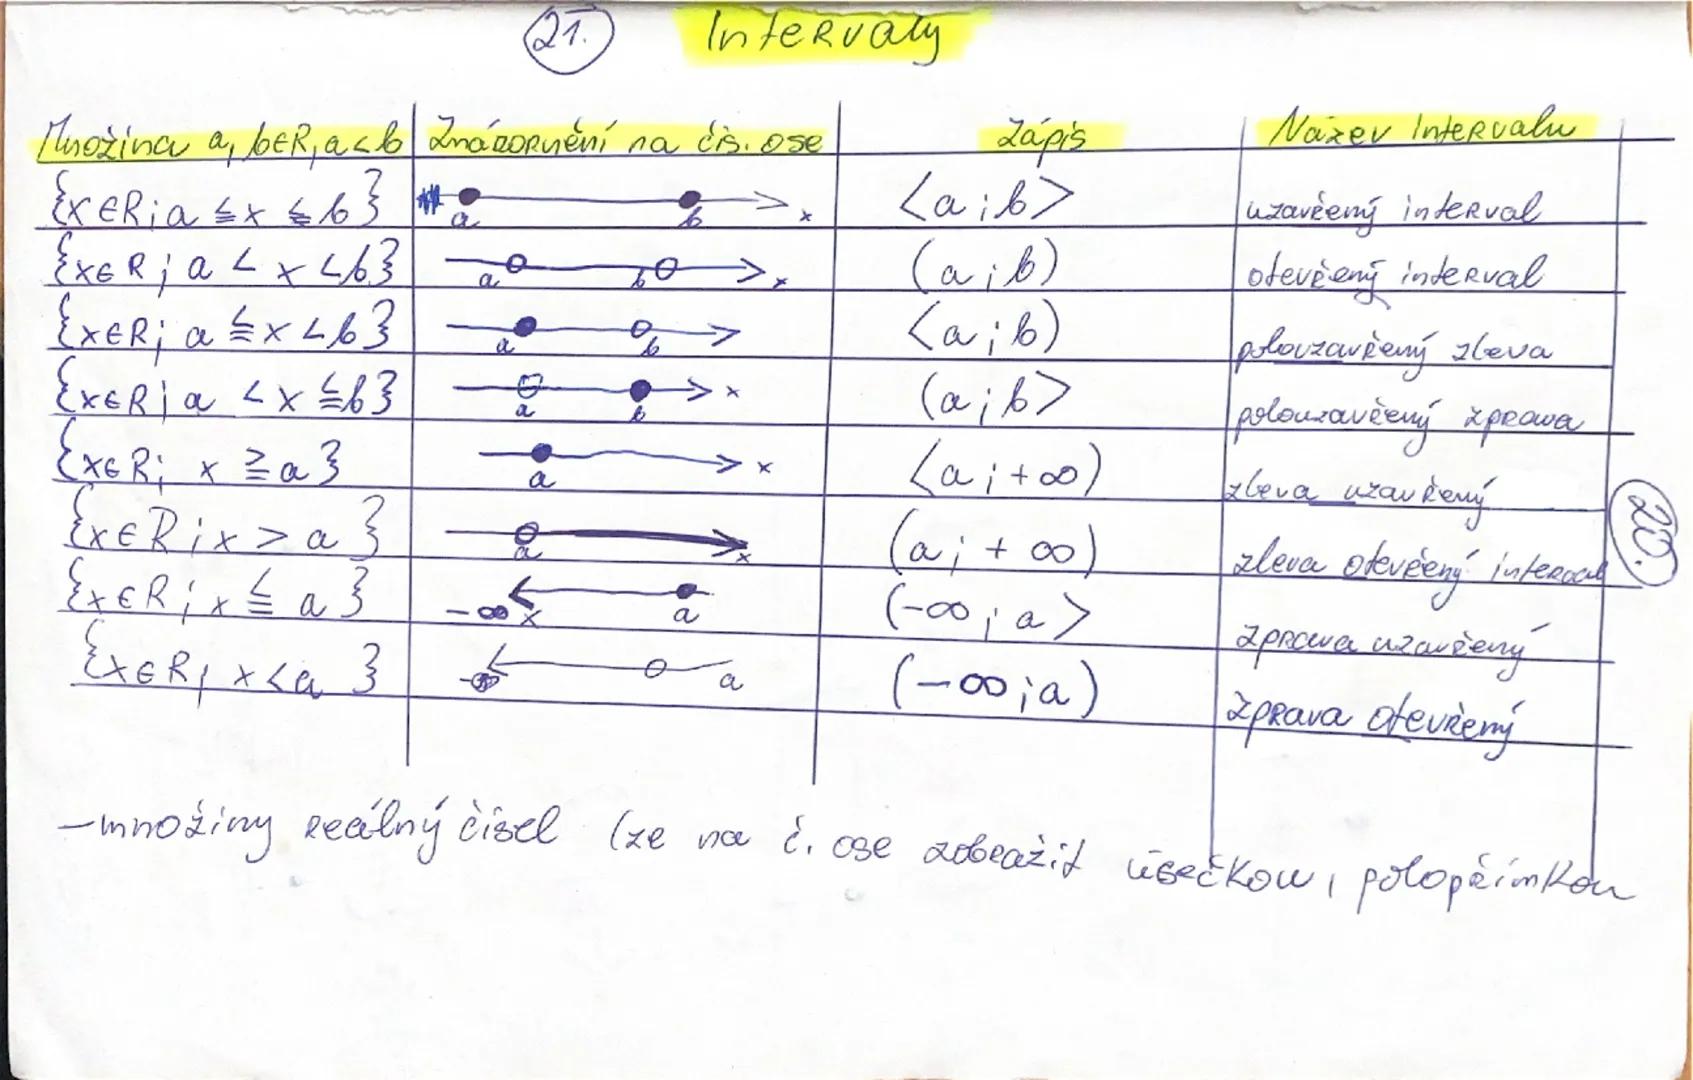 21. Intervaly
Množina a, b∈R, a<b Znázornění na čís. ose Zápis Název intervalu
{x∈R; a ≦ x ≦ b} a b x <a;b> uzavřený interval
{x∈R; a < x < b} a b x (a;b) otevřený interval
{x∈R; a ≦ x < b} a b <a;b) polouzavřený zleva
{x∈R; a < x ≦ b} a b x (a;b> polouzavřený zprava
{x∈R; x ≧ a} a x <a;+∞) zleva uzavřený
{x∈R; x > a} a x (a; + ∞) zleva otevřený interval
20.
{x∈R; x ≦ a} -∞ x a (-∞; a> zprava uzavřený
{x∈R; x < a} a (-∞;a) zprava otevřený
- množiny reálný čísel (ze na č. ose zobrazit úsečkou, polopřímkou